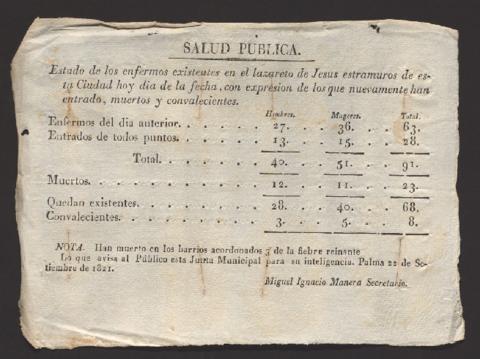 SALUD PÚBLICA.
Estado de los enfermos existentes en el lazareto de Jesus estramuros de es-
ta Ciudad hoy dia de la fecha, con expresion de los que nuevamente han
entrado, muertos y convalecientes.
Hombres. Mugeres. Total.
Enfermos del dia anterior. . . . . . 27. . . 36. . . 63.
Entrados de todos puntos. . . . . . 13. . . 15. . . 28.
Total. . . . . . 40. . . 51. . . 91.
Muertos. . . . . . . . . 12. . . 11. . . 23.
Quedan existentes. . . . . . . 28. . . 40. . . 68.
Convalecientes. . . . . . . . 3. . . 5. . . 8.
NOTA. Han muerto en los barrios acordonados 3 de la fiebre reinante
Lo que avisa al Público esta Junta Municipal para su inteligencia. Palma 22 de Se-
tiembre de 1821.
Miguel Ignacio Manera Secretario.